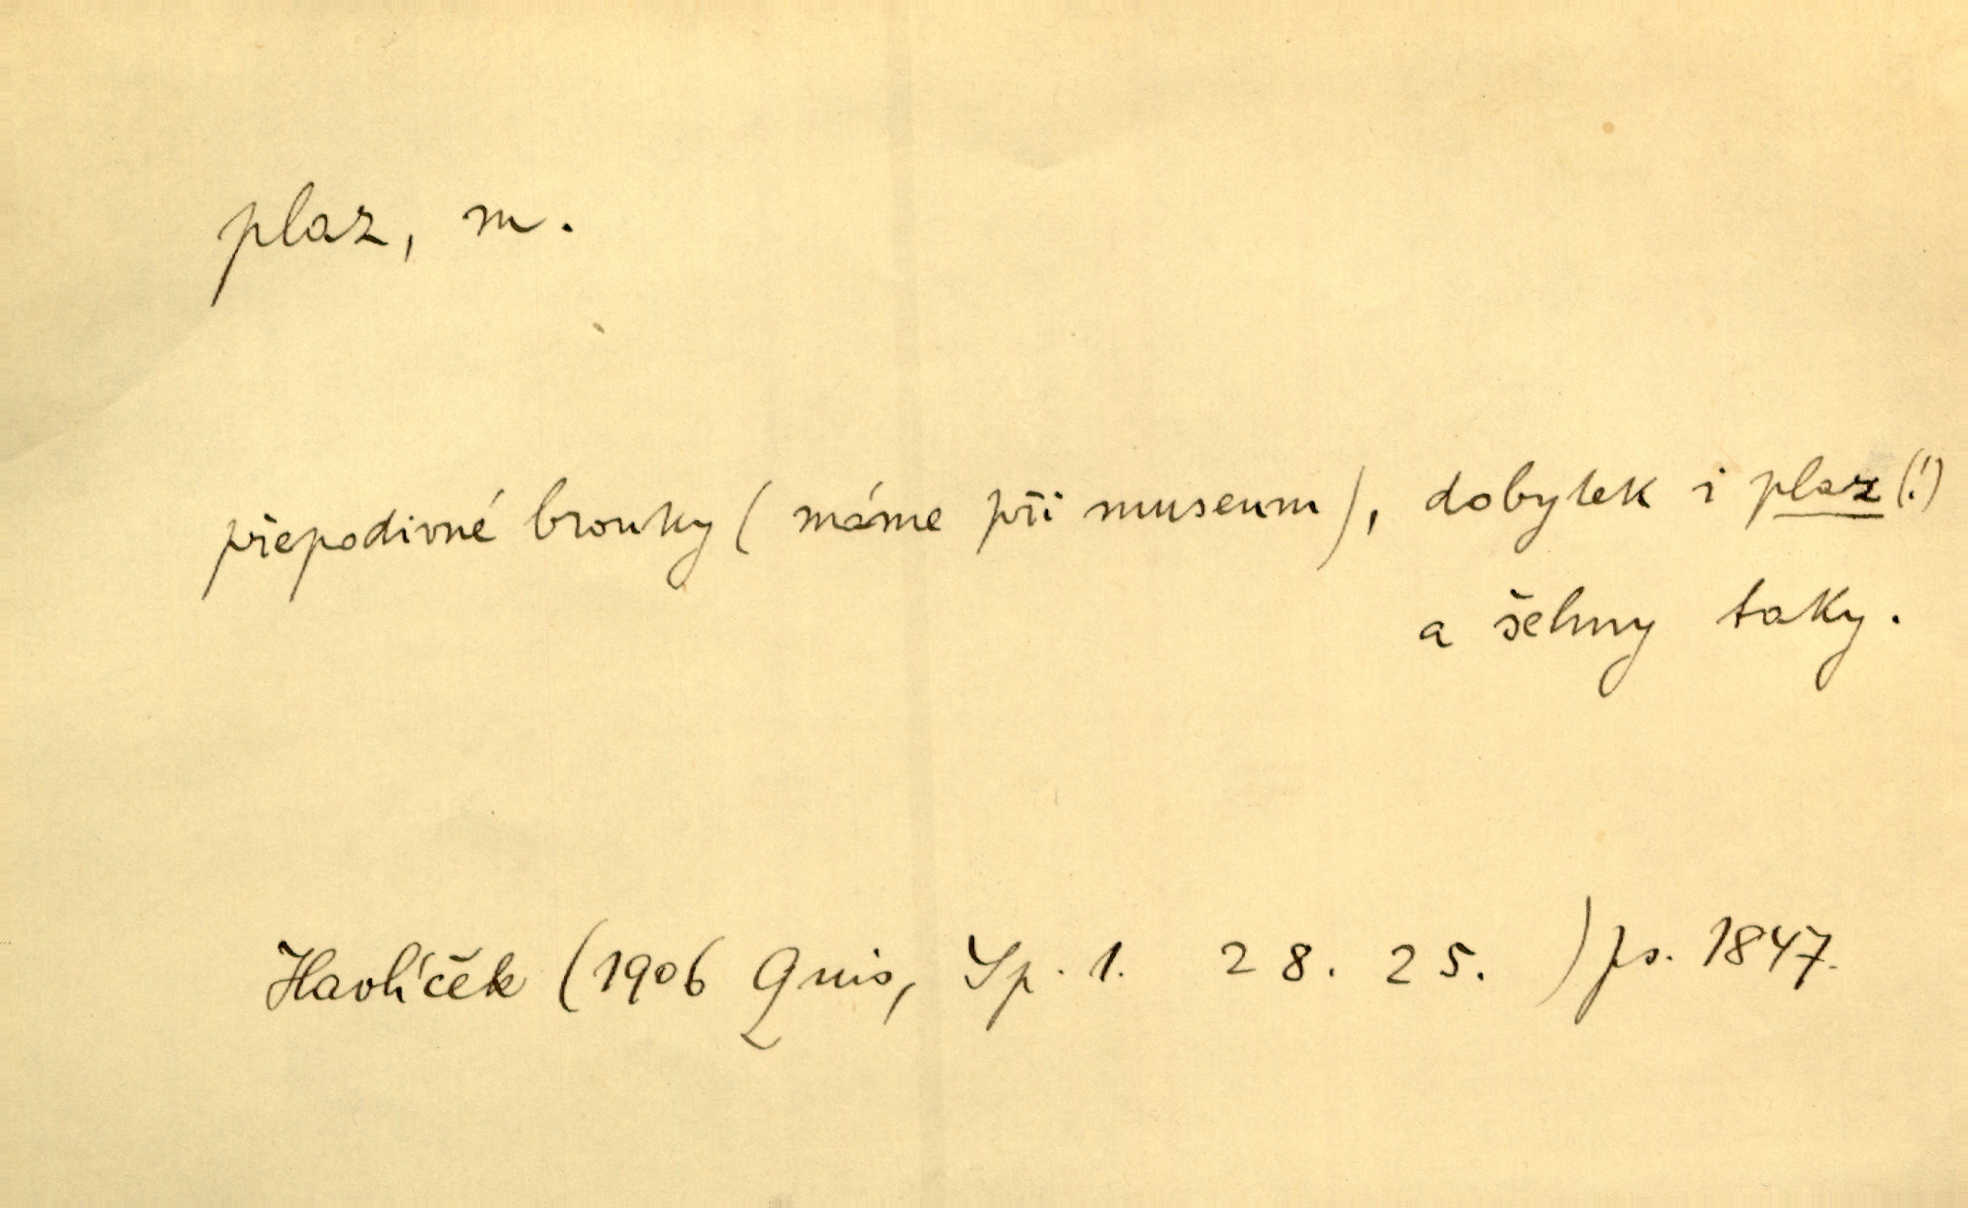 plaz, m.
přepodivné brouky (máme při museum), dobytek i plaz (!)
a šelmy taky.
Havlíček (1906 Quis, Sp. 1. 28. 25. ) ps. 1847.